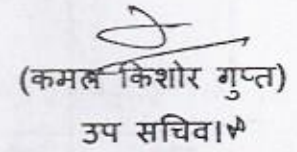 (कमल किशोर गुप्त)
उप सचिव।